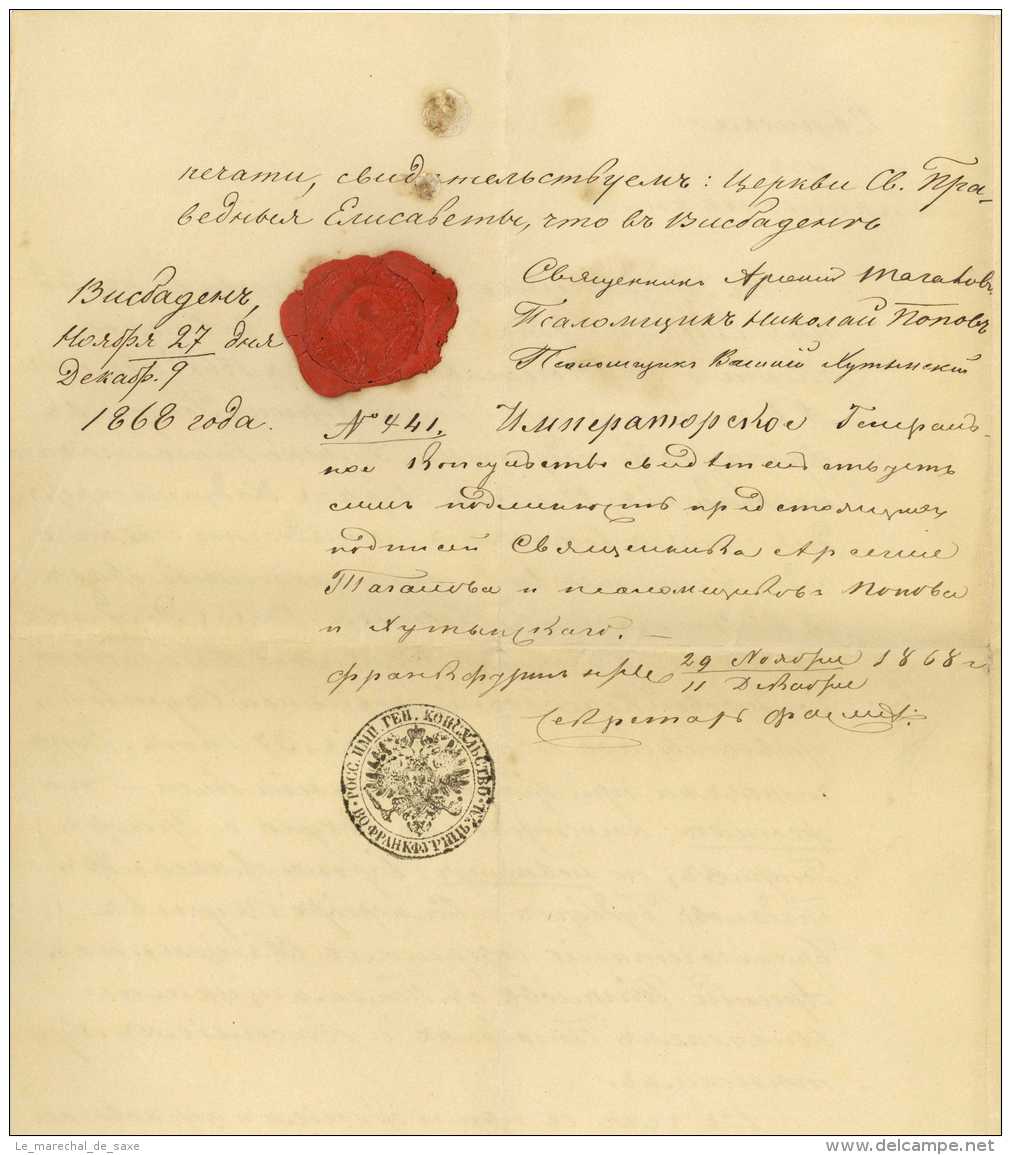 печати, свидѣтельствуемъ: Церкви Св. Пра-
ведныя Елисаветы, что въ Висбаденѣ
Священникъ Арсеній Тачаловъ.
Псаломщикъ Николай Поповъ
Псаломщикъ Василій Хутынскій
Висбаденъ,
Ноября 27 дня
Декабр. 9
1868 года.
№ 441. Императорское Генераль-
ное Консульство свидѣтельствуетъ
симъ подлинность предстоящихъ
подписей Священника Арсенія
Тачалова и псаломщиковъ Попова
и Хутынскаго. —
Франкфуртъ н/М 29 Ноября 1868 г
11 Декабря
Секретарь
РОСС. ИМП. ГЕН. КОНСУЛЬСТВО
ВО ФРАНКФУРТѢ Н/М
Le_marechal_de_saxe
www.delcampe.net